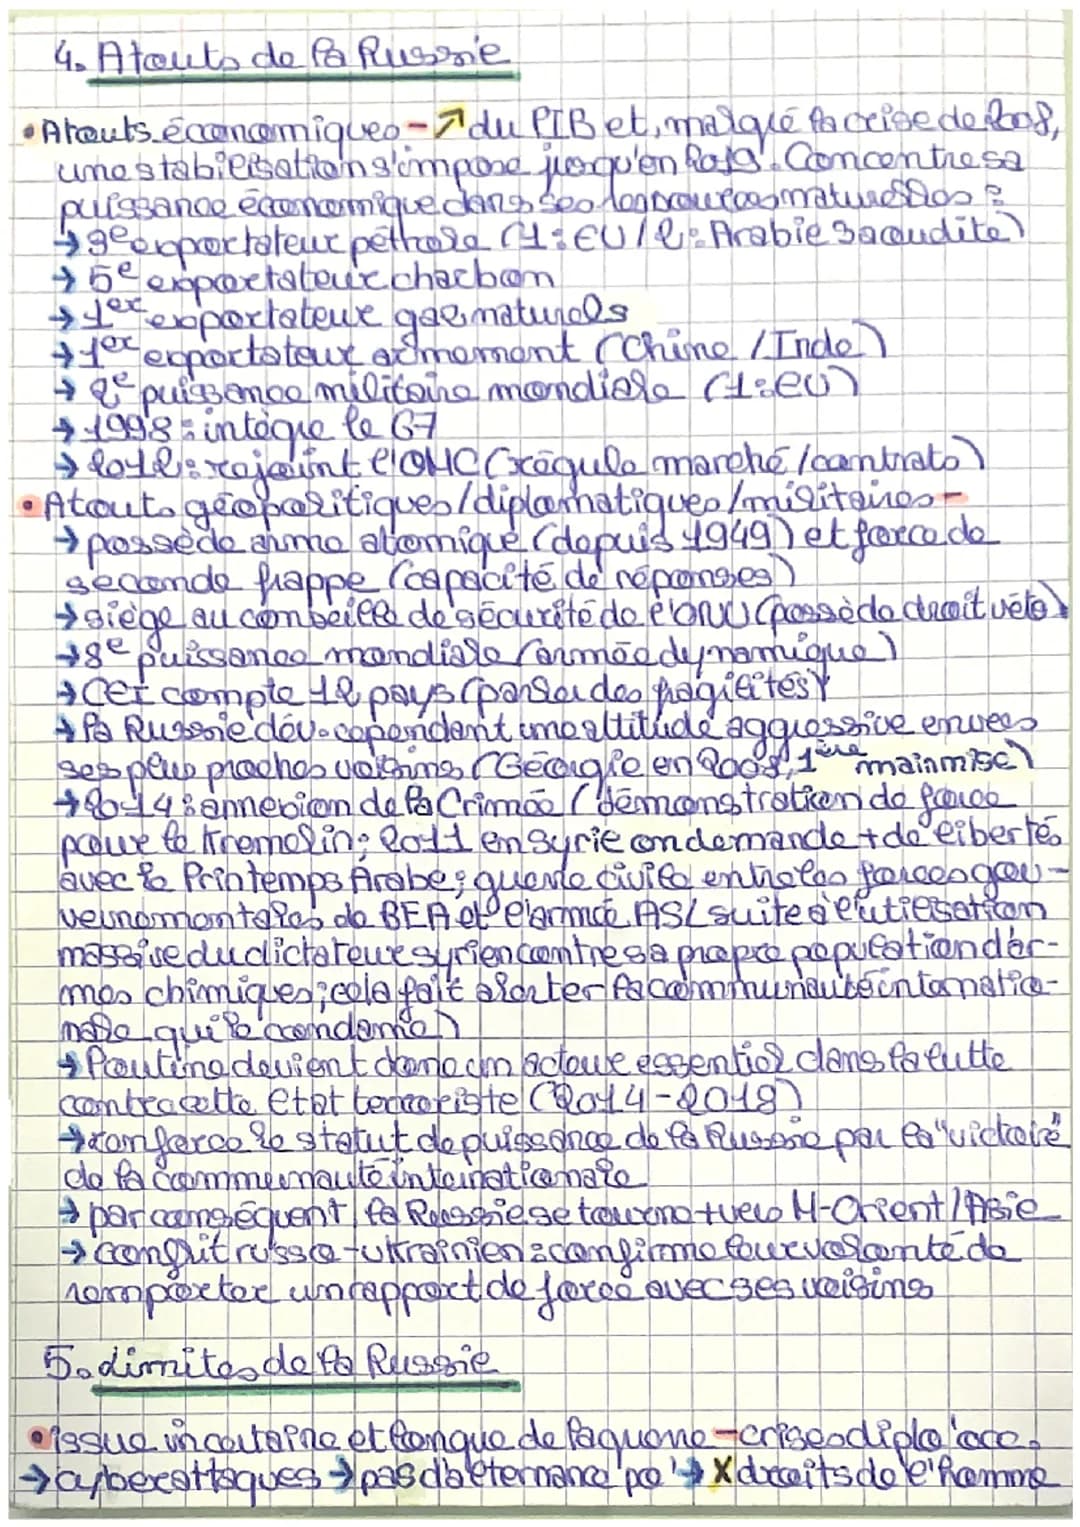 4. Atouts de la Russie
• Atouts économiques - ↗ du PIB et, malgré la crise de 2008,
une stabilisation s'impose jusqu'en 2019. Concentre sa
puissance économique dans ses ressources naturelles :
→ 3e exportateur pétrole (1: EU / 2: Arabie Saoudite)
→ 5e exportateur charbon
→ 1er exportateur gaz naturels
→ 1er exportateur armement (Chine / Inde)
→ 2e puissance militaire mondiale (1: EU)
→ 1998 : intègre le G7
→ 2012 : rejoint l'OMC (régule marché / contrats)
• Atouts géopolitiques / diplomatiques / militaires -
→ possède arme atomique (depuis 1949) et force de
seconde frappe (capacité de réponses)
→ siège au conseille de sécurité de l'ONU (possède droit véto)
→ 8e puissance mondiale (armée dynamique)
→ CEI compte 12 pays (par des fragilités)
→ la Russie dév. cependant une attitude aggressive envers
ses plus proches voisins (Géorgie en 2008, 1ère mainmise)
→ 2014 : annexion de la Crimée (démonstration de force
pour le Kremelin ; 2011 en Syrie on demande + de libertés
avec le Printemps Arabe ; guerre civile entre les forces gou-
vernementales de BEA et l'armée ASL suite à l'utilisation
massive du dictateur syrien contre sa propre population d'ar-
mes chimiques ; cela fait alerter la communauté internatio-
nale qui le condamne)
→ Poutine devient donc un acteur essentiel dans la lutte
contre cette Etat terroriste (2014-2019)
→ renforce le statut de puissance de la Russie par la "victoire"
de la communauté internationale
→ par conséquent, la Russie se tourne + vers M-Orient / Asie
→ conflit russo-ukrainien : confirme leur volonté de
remporter un rapport de force avec ses voisins
5. Limites de la Russie
• issue incertaine et longue de la guerre - crises diplo' acc.
→ cyberattaques → pas d'alternance po' → X droits de l'Homme